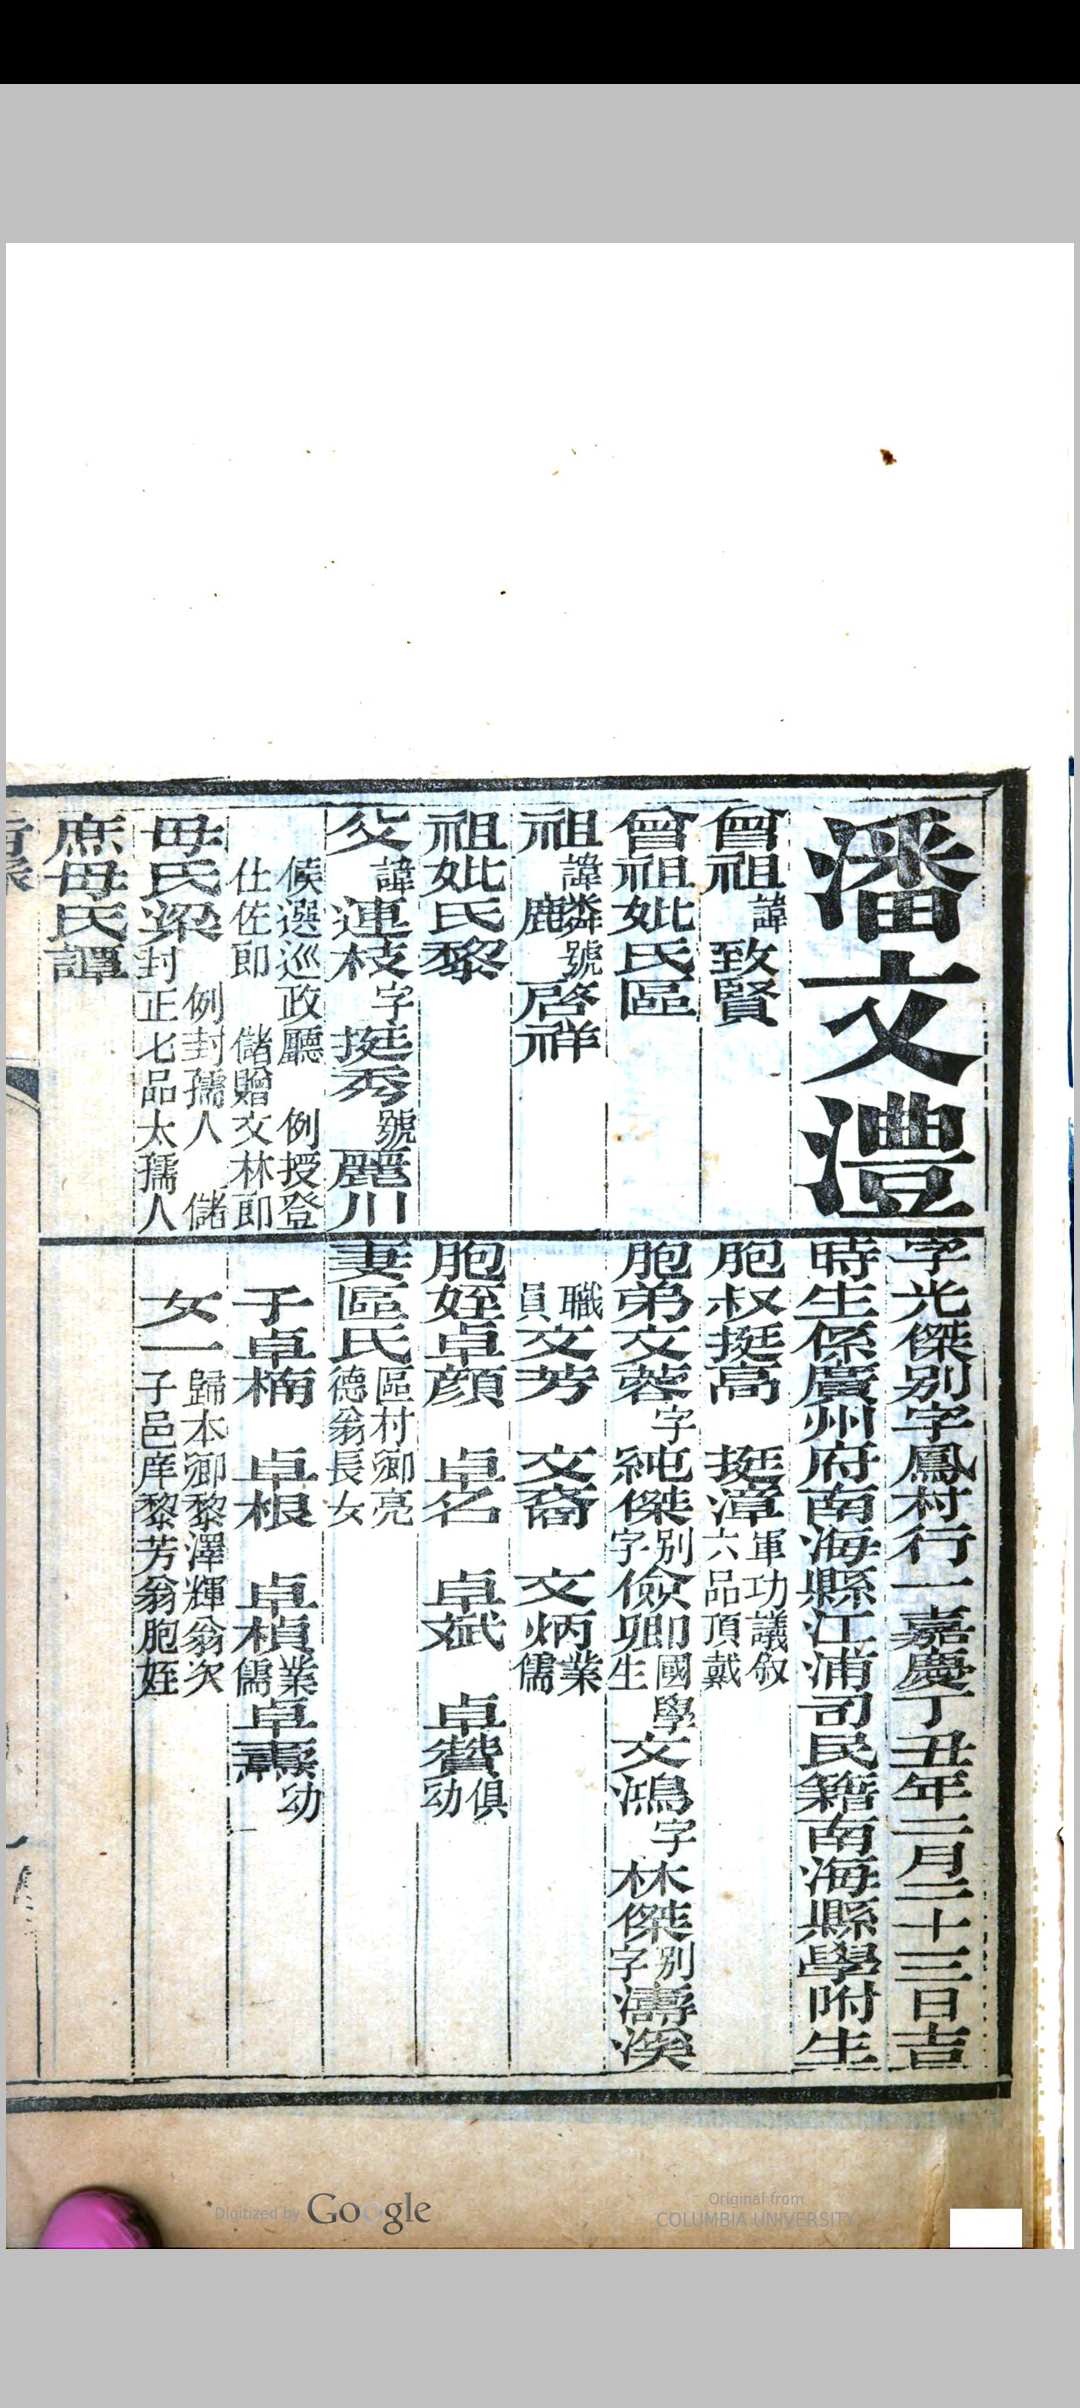 潘文澧
字光傑別字鳳村行一嘉慶丁丑年二月二十三日吉
時生係廣州府南海縣江浦司民籍南海縣學附生
曾祖諱致賢
曾祖妣氏區
祖諱麟號啓祥
祖妣氏黎
父諱連枝字挺秀號麗川
候選巡政廳 例授登
仕佐郎 儲贈文林郎
母氏梁
例封孺人 儲
封正七品太孺人
庶母氏譚
胞叔挺高 挺漳軍功議敘
六品頂戴
胞弟文蓉字純傑別字儉卿國學生 文鴻字林傑別字濤溪
職員文芳 文裔 文炳業儒
胞姪卓顔 卓名 卓斌 卓贊俱幼
妻區氏區村鄉亮
德翁長女
子卓楠 卓根 卓楨業儒 卓燾幼
女一歸本鄉黎澤輝翁次
子邑庠黎芳翁胞姪
Digitized by Google
Original from
COLUMBIA UNIVERSITY